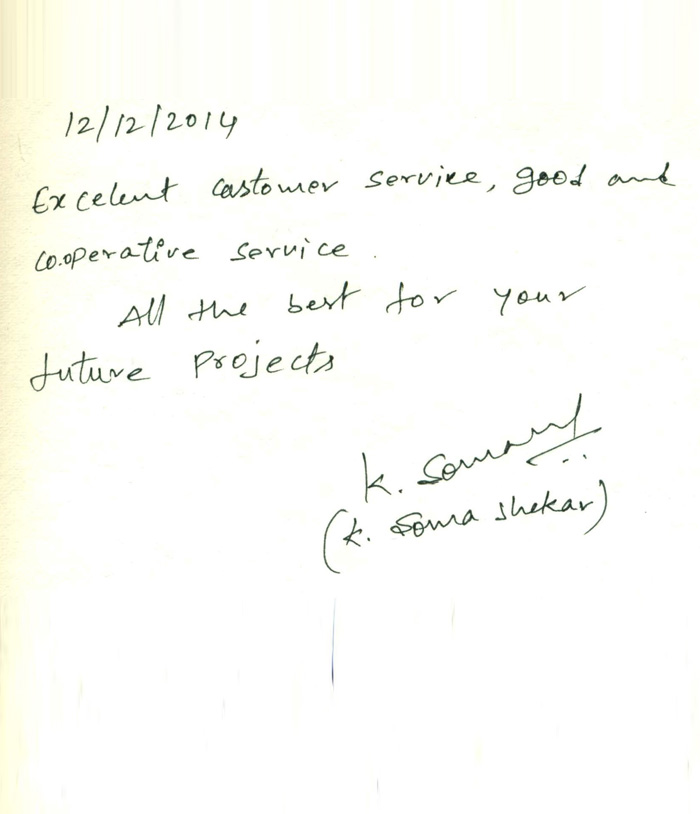 12/12/2014
Excelent castomer service, good and
co.operative service.
All the best for your
future projects
k. Soma
(k. Soma shekar)